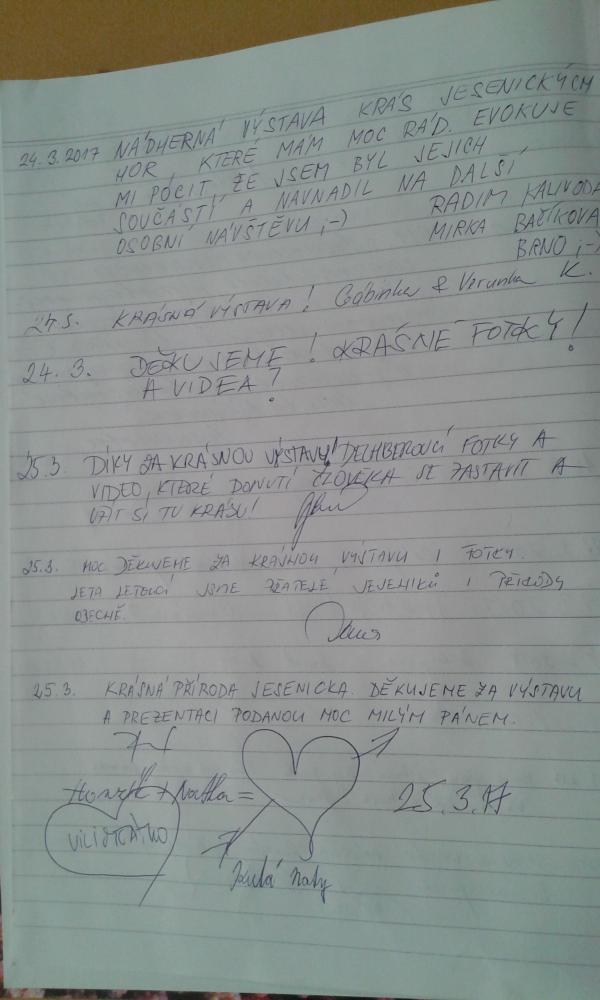 24.3.2017 NÁDHERNÁ VÝSTAVA KRÁS JESENICKÝCH
HOR, KTERÉ MÁM MOC RÁD. EVOKUJE
MI POCIT, ŽE JSEM BYL JEJICH
SOUČÁSTÍ A NAVNADIL NA DALŠÍ
OSOBNÍ NÁVŠTĚVU ;-) RADIM KALIVODA
MIRKA BAČÍKOVÁ
BRNO ;-)
24.3. KRÁSNÁ VÝSTAVA! Gábinka & Verunka K.
24.3. DĚKUJEME! KRÁSNÉ FOTKY!
A VIDEA!
25.3. DÍKY ZA KRÁSNOU VÝSTAVU! DECHBEROUCÍ FOTKY A
VIDEO, KTERÉ DONUTÍ ČLOVĚKA SE ZASTAVIT A
UŽÍT SI TU KRÁSU!
25.3. MOC DĚKUJEME ZA KRÁSNOU VÝSTAVU I FOTKY.
LETA LETOUCÍ JSME PŘÁTELÉ JESENÍKŮ I PŘÍRODY
OBECNĚ.
25.3. KRÁSNÁ PŘÍRODA JESENICKA. DĚKUJEME ZA VÝSTAVU
A PREZENTACI PODANOU MOC MILÝM PÁNEM.
Honzík + Naťka =
25.3.17